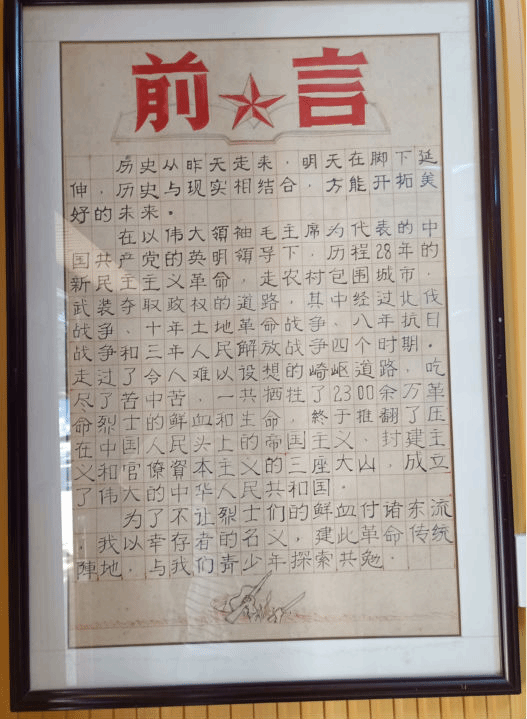 前言
历史从昨天走来，明天在脚下延
伸，历史与现实相结合，方能开拓美
好的未来。
在以伟大領袖毛主席为代表的中
国共产党的英明領导下，历程28年的
新民主主义革命，走农村包围城市，
武装夺取政权的道路，其中经过北伐
战争、十年土地革命战争、八年抗日
战争和三年人民解放战争四个时期。
走过了令人难以设想的崎岖道路，吃
尽了苦中苦，一共牺牲了2300余万革
命烈士的鲜血和生命，終于推翻了压
在中国人民头上的帝国主义、封建主
义和官僚資本主义的三座大山，成立
了伟大的中华人民共和国。
为了不让烈士们的鲜血付诸东流
，我以幸存者的名义，建此革命传统
陣地，与我们青少年探索共勉。